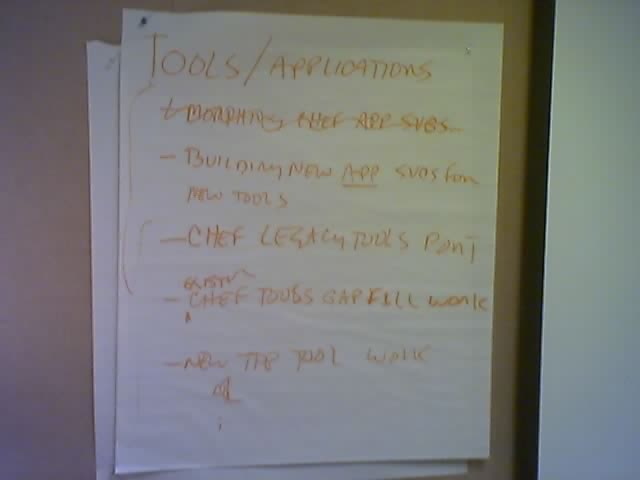 TOOLS/APPLICATIONS
- MORPHING CHEF APP SVBS
- BUILDING NEW APP SVBS for
NEW TOOLS
- CHEF LEGACY TOOLS PORT
- CHEF TOOLS GAP FILL WORK
- NEW TPP TOOL WORK